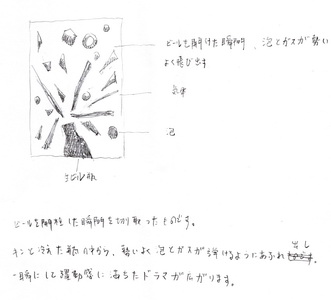 ビールを開けた瞬間、泡とガスが勢い
よく飛び出す
気体
泡
ビール瓶
ビールを開栓した瞬間を切り取ったものです。
キンと冷えた瓶の中から、勢いよく泡とガスが弾けるようにあふれ出し
一瞬にして躍動感に満ちたドラマが広がります。